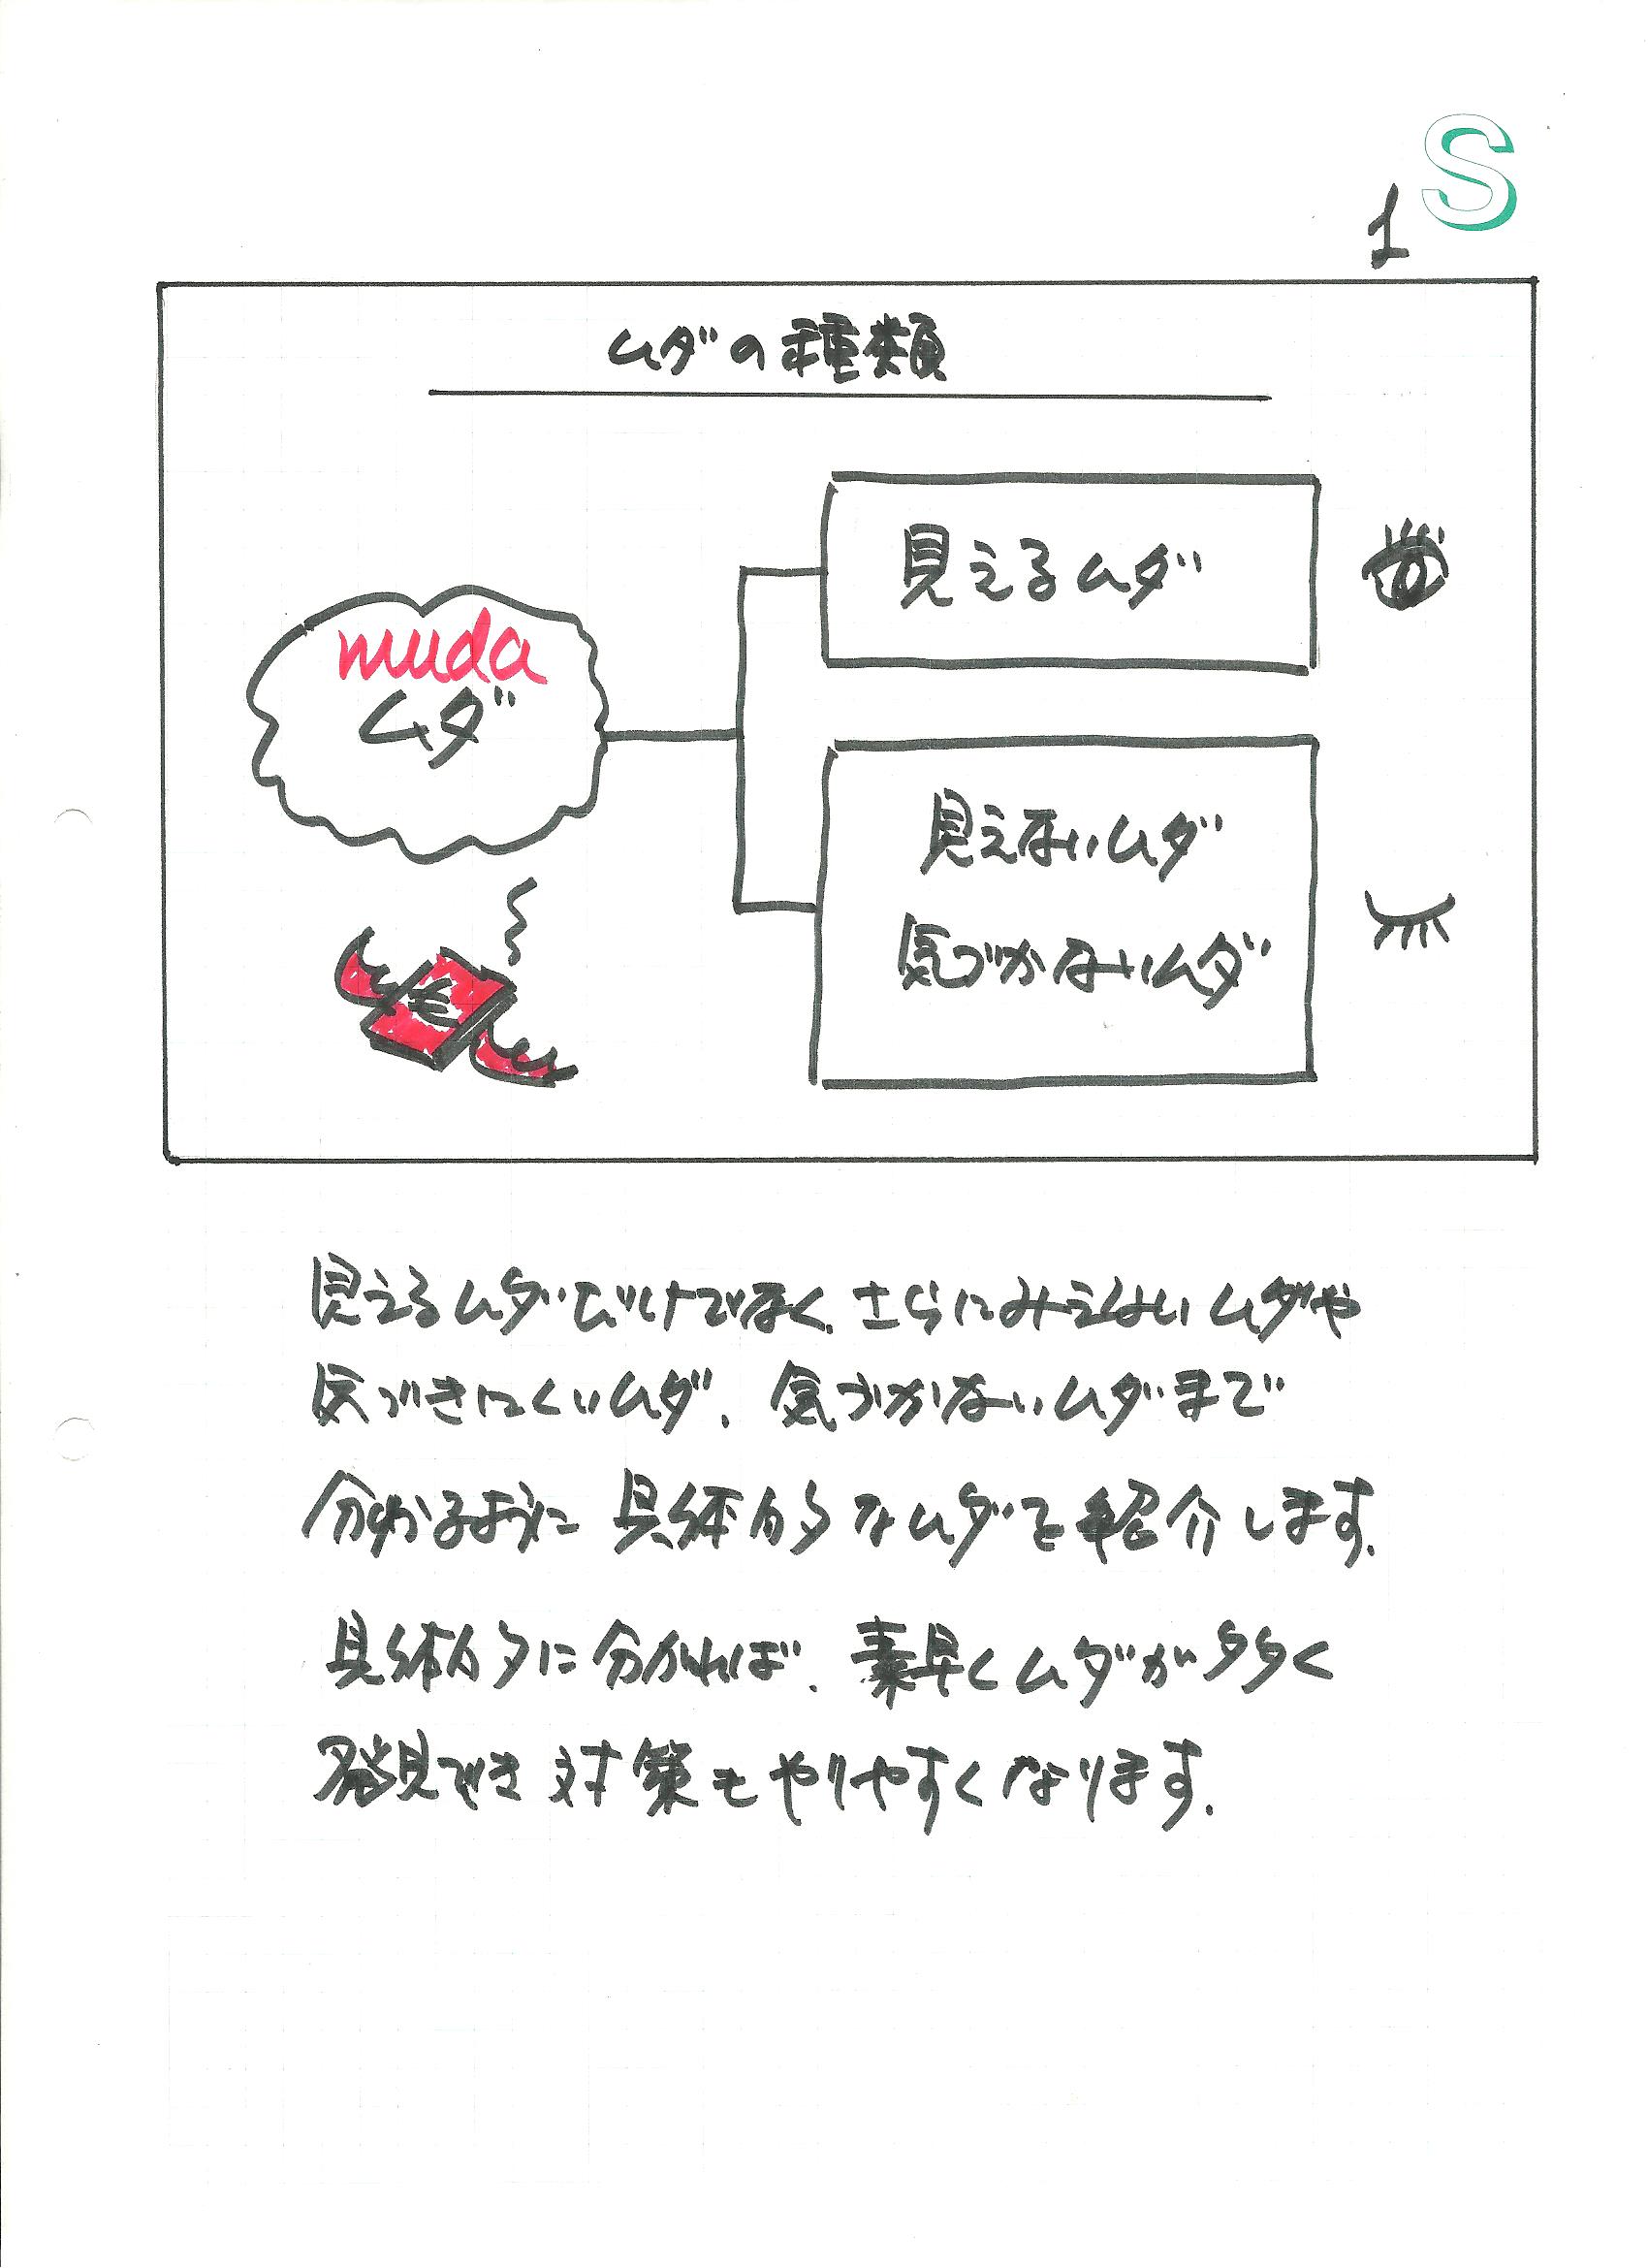 S
1
ムダの種類
見えるムダ
muda
ムダ
見えないムダ
気づかないムダ
見えるムダだけでなく、さらにみえないムダや
気づきにくいムダ、気づかないムダまで
分かるように具体的なムダを紹介します。
具体的に分かれば、素早くムダが多く
発見でき対策もやりやすくなります。